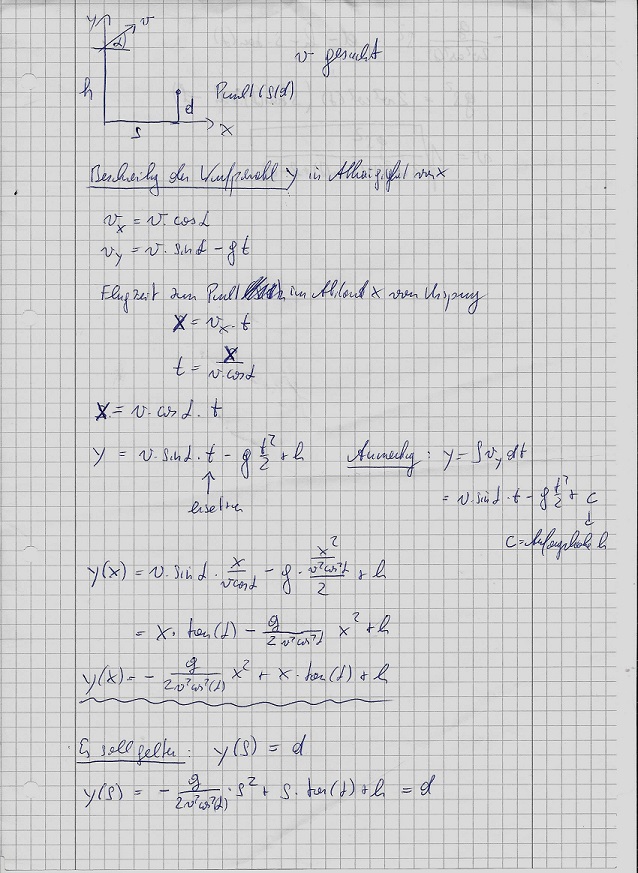 y
α
v
v gesucht
h
Punkt (s|d)
d
s
x
Beschreibg der Wurfparabel y in Abhängigkeit von x
v_x = v · cos α
v_y = v · sin α - g t
Flugzeit zum Punkt im Abstand x vom Ursprung
x = v_x · t
t = x / (v · cos α)
x = v · cos α · t
y = v · sin α · t - g t²/2 + h
einsetzen
Anmerkg : y = ∫ v_y dt
= v · sin α · t - g t²/2 + c
c = Anfangshöhe h
y(x) = v · sin α · x/(v cos α) - g · (x²/(v² cos² α))/2 + h
= x · tan(α) - g/(2 v² cos² α) x² + h
y(x) = - g/(2 v² cos²(α)) x² + x · tan(α) + h
Es soll gelten : y(s) = d
y(s) = - g/(2 v² cos²(α)) · s² + s · tan(α) + h = d